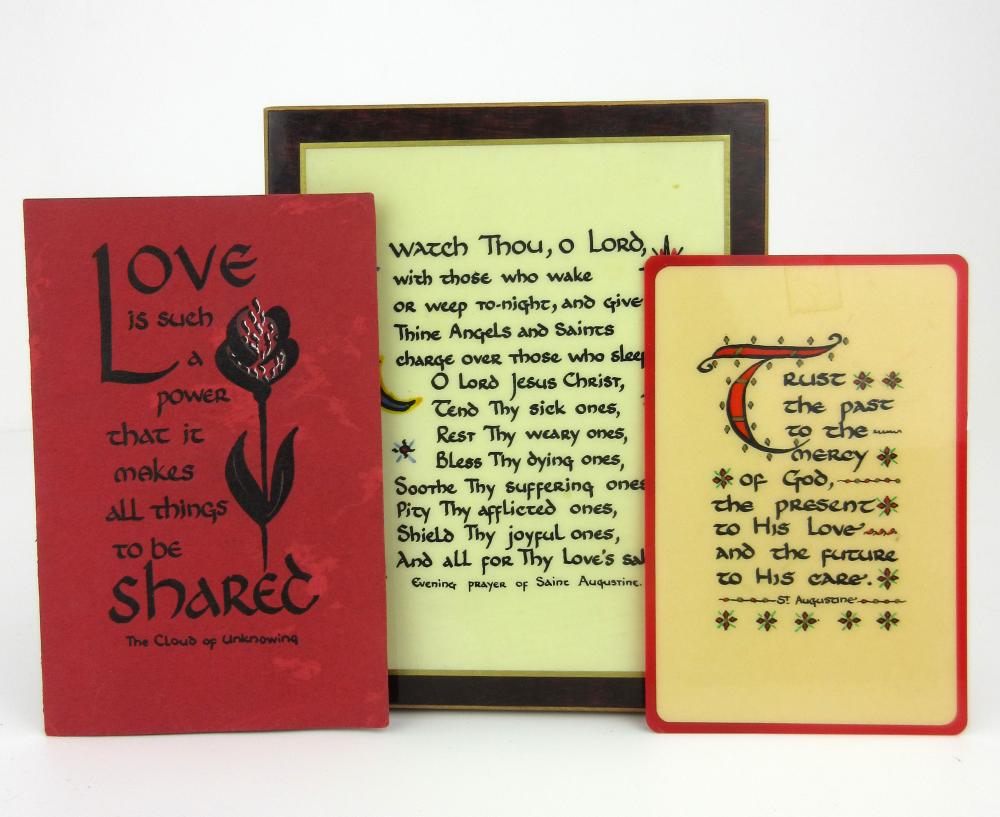 Love
is such
a
power
that it
makes
all things
to be
shared
The Cloud of Unknowing
watch Thou, O Lord,
with those who wake
or weep to-night, and give
Thine Angels and Saints
charge over those who sleep
O Lord Jesus Christ,
Tend Thy sick ones,
Rest Thy weary ones,
Bless Thy dying ones,
Soothe Thy suffering ones
Pity Thy afflicted ones,
Shield Thy joyful ones,
And all for Thy Love's
Evening prayer of Saint Augustine.
Trust
the past
to the
mercy
of God,
the present
to His Love
and the future
to His care.
St Augustine